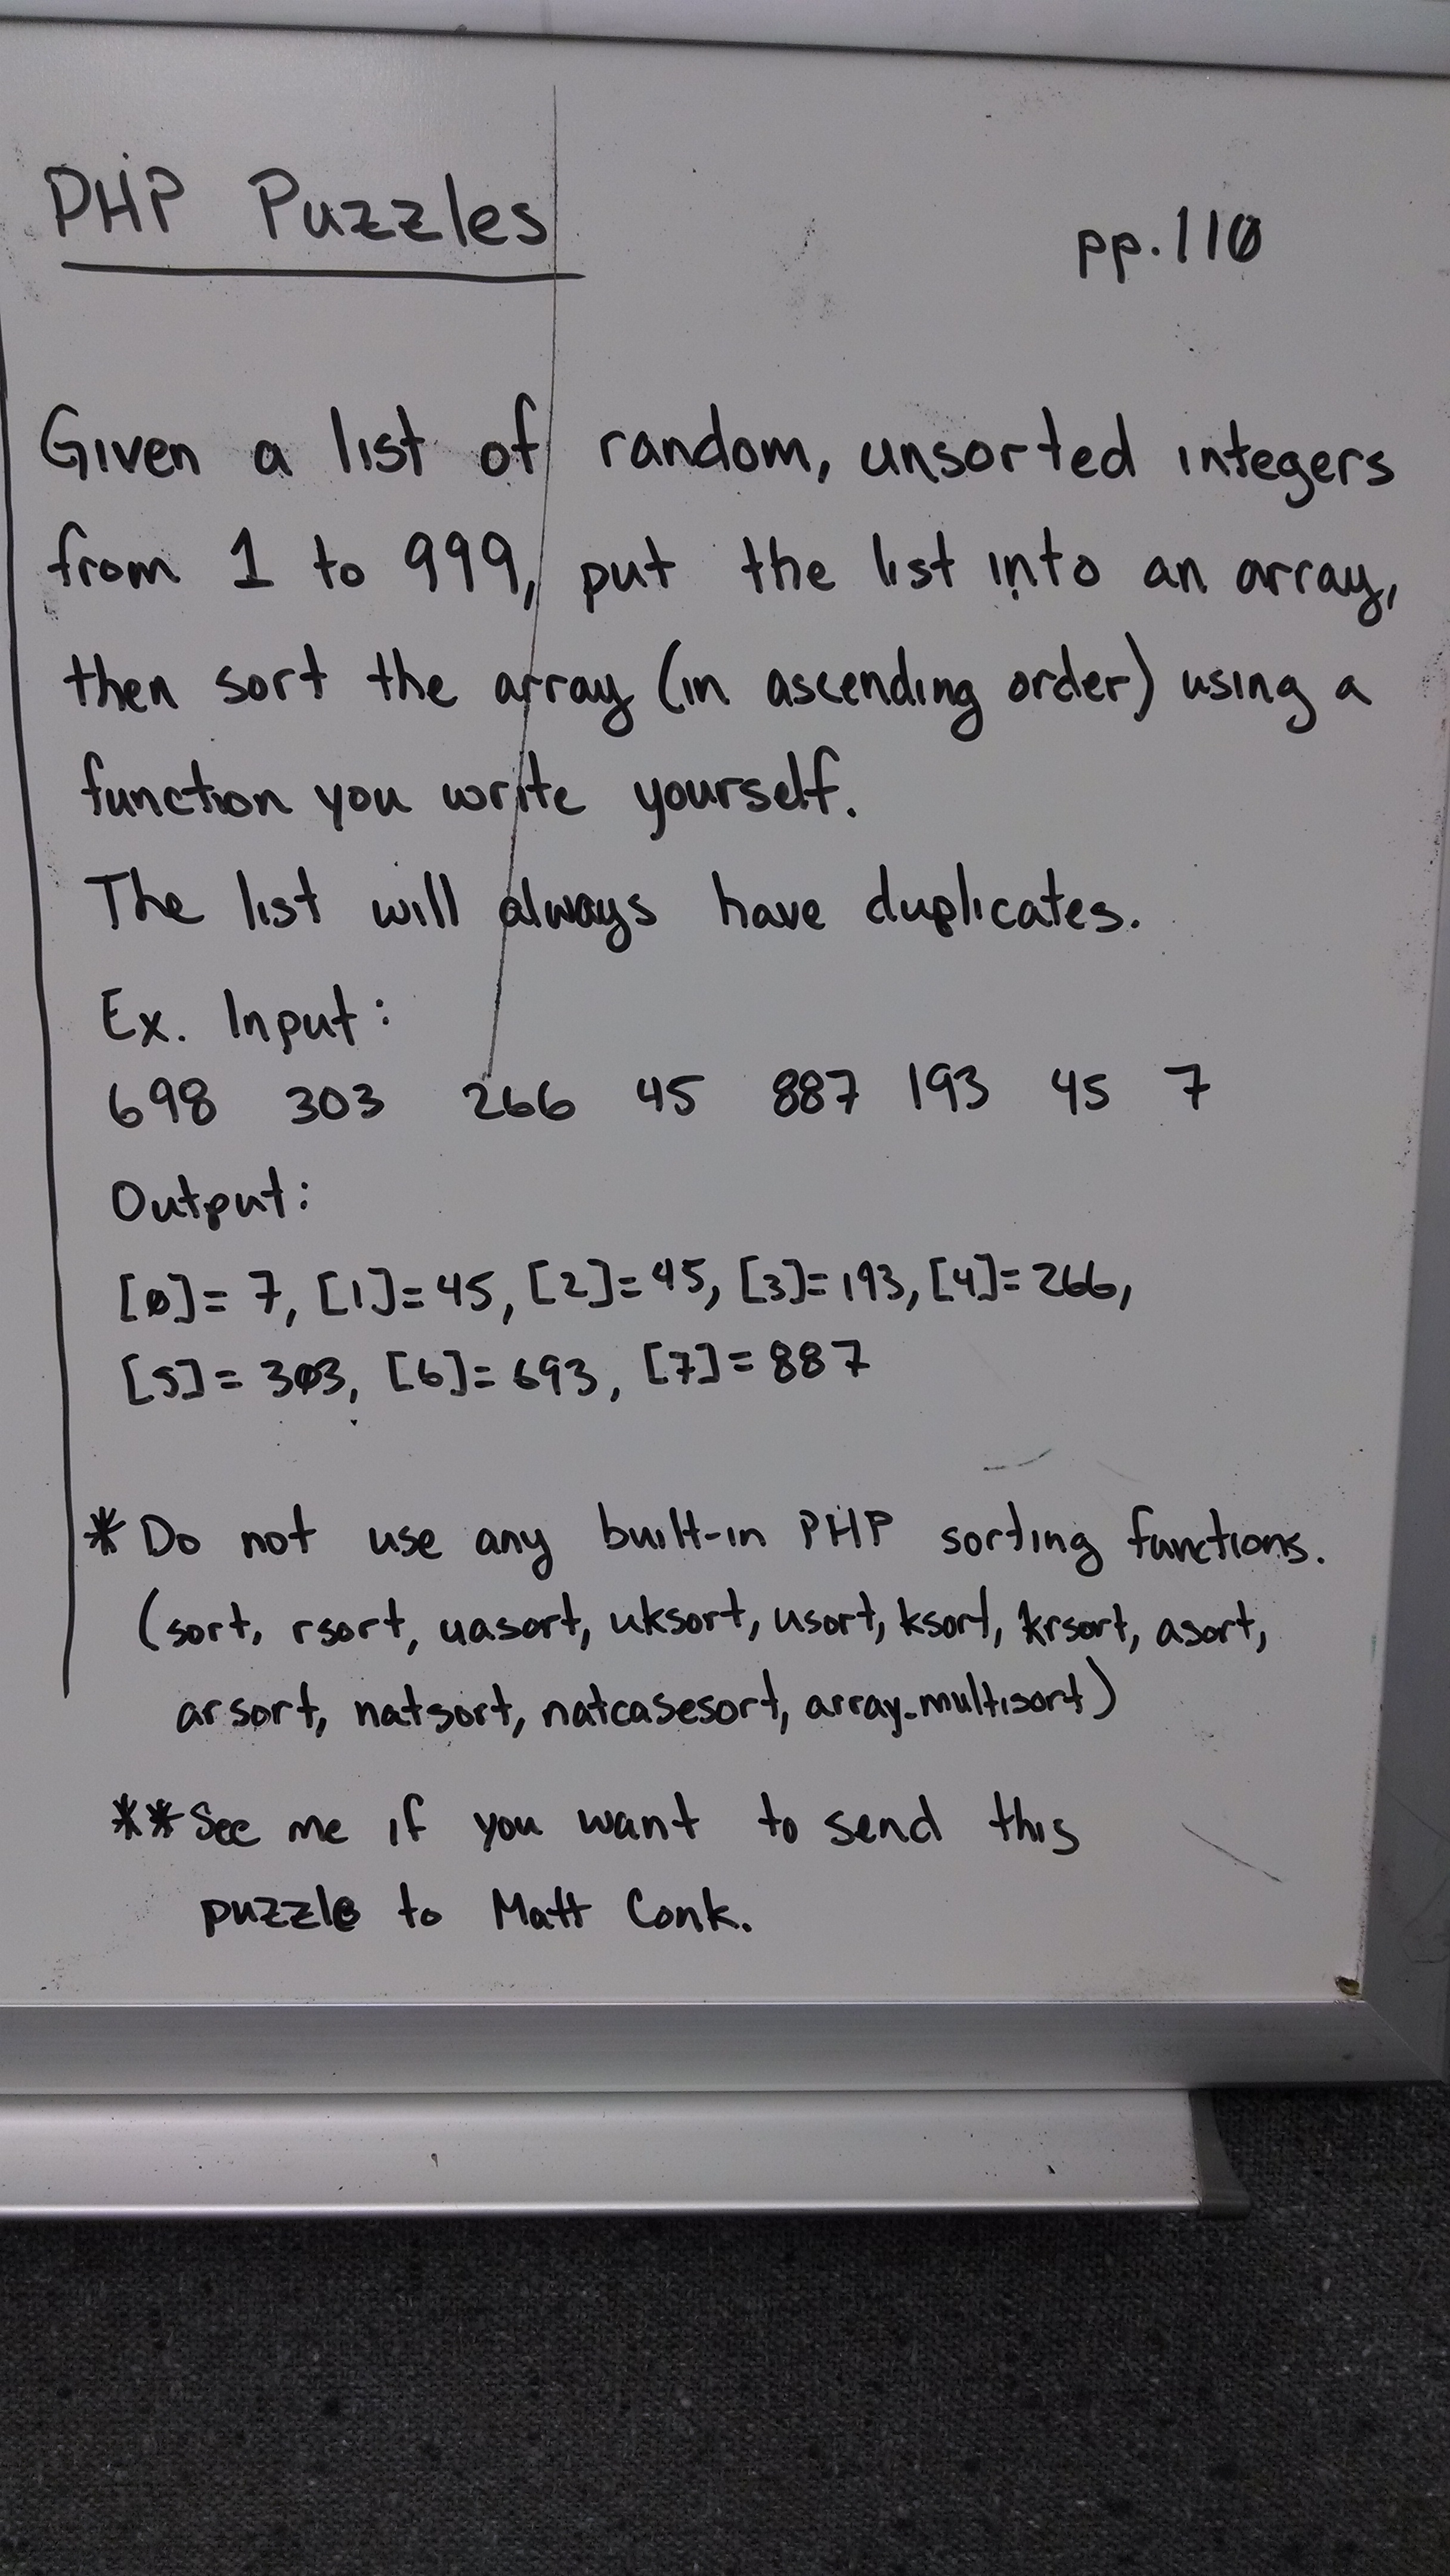 PHP Puzzles
pp.110
Given a list of random, unsorted integers
from 1 to 999, put the list into an array,
then sort the array (in ascending order) using a
function you write yourself.
The list will always have duplicates.
Ex. Input:
698 303 266 45 887 193 45 7
Output:
[0]= 7, [1]=45, [2]=45, [3]=193, [4]=266,
[5]= 303, [6]=693, [7]=887
* Do not use any built-in PHP sorting functions.
(sort, rsort, uasort, uksort, usort, ksort, krsort, asort,
arsort, natsort, natcasesort, array_multisort)
** See me if you want to send this
puzzle to Matt Conk.